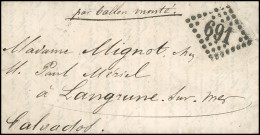 par ballon monté.
691
Madame Mignot, chez
M. Paul Mériel
à Langrune sur mer
Calvados.